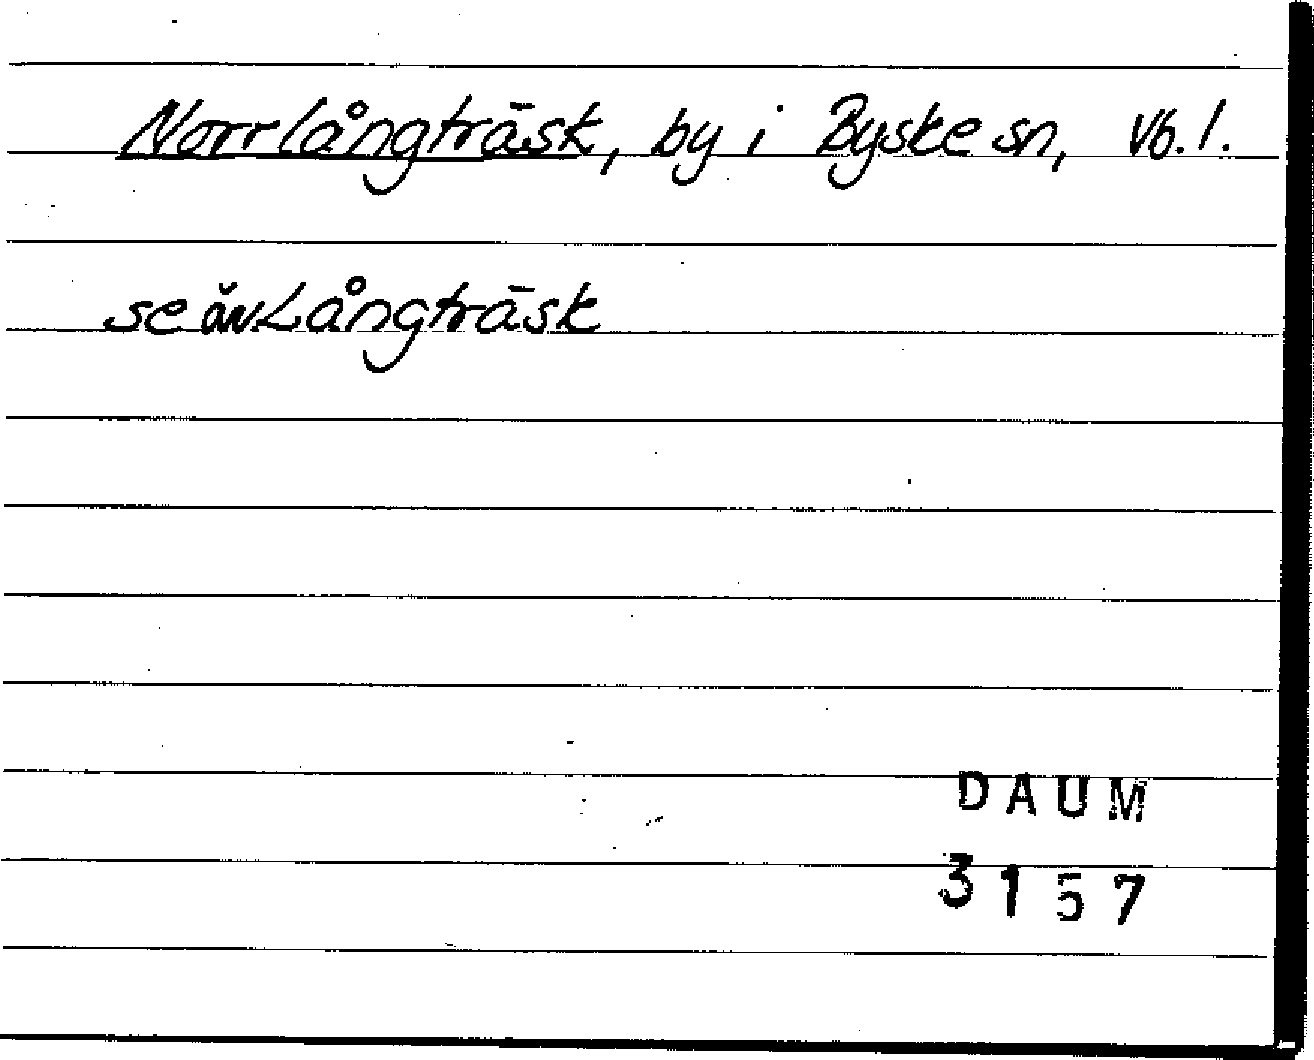 Norrlångträsk, by i Byske sn, Vb. l.
se äv Långträsk
DAUM
3157